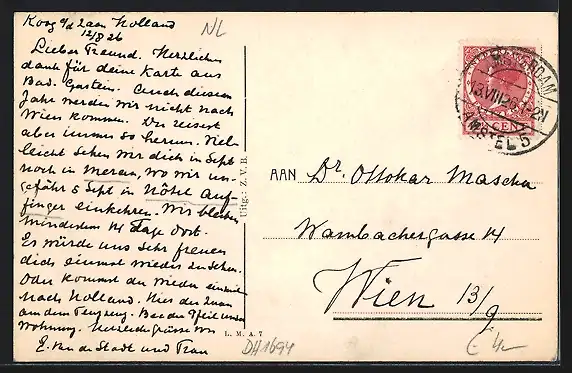 Koog a/d Zaan Holland
12/8 26
NL
Lieber Freund. Herzlichen
dank für deine Karte aus
Bad Gastein. Auch diesen
Jahr werden wir nicht nach
Wien kommen. Du reisest
aber immer so herum. Viel-
leicht sehen wir dich in Sept
noch in Meran, wo wir un-
gefähr 5 Sept in Hôtel Auf-
finger einkehren. Wir bleiben
mindestens 14 Tage dort.
Es würde uns sehr freuen
dich einmal wieder zu sehen.
Oder kommst du wieder einmal
nach Holland. Hier der Zaan
aus dem Flugzeug. Bei der Pfeil unsere
Wohnung. Herzliche grüsse von
E. van de Stadt und Frau
Uitg.: Z. V. B.
L. M. A. 7
DH1694
AMSTERDAM
13.VIII26 1-2N
AMSTEL 5
CENT
AAN Dr. Ottokar Mascha
Wambachergasse 14
Wien 13/9
€ 4,-